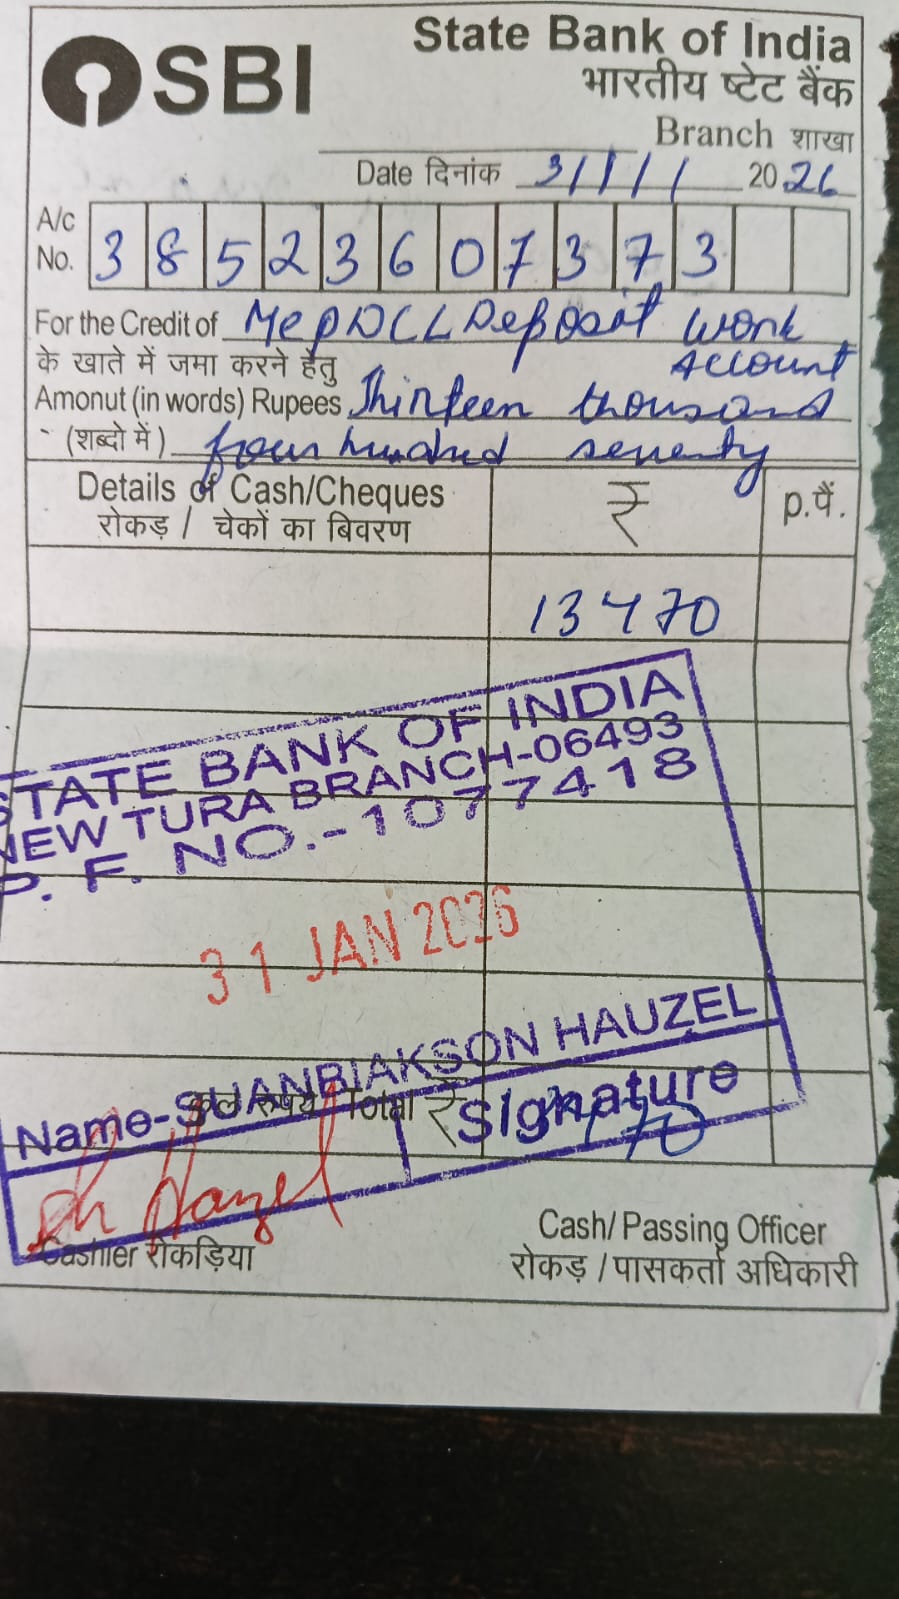 SBI
State Bank of India
भारतीय ष्टेट बैंक
Branch शाखा
Date दिनांक 31/1/ 2026
A/c No. 38523607373
For the Credit of MePDCL Deposit Work
के खाते में जमा करने हेतु Account
Amonut (in words) Rupees Thirteen thousand
(शब्दो में) four hundred seventy
Details of Cash/Cheques ₹ p.पैं.
रोकड़ / चेकों का बिवरण
13470
STATE BANK OF INDIA
NEW TURA BRANCH-06493
P. F. NO.-1077418
31 JAN 2026
Name-SUANBIAKSON HAUZEL
कुल रुपये Total ₹
Signature
Cashier रोकड़िया
Cash/Passing Officer
रोकड़ /पासकर्ता अधिकारी